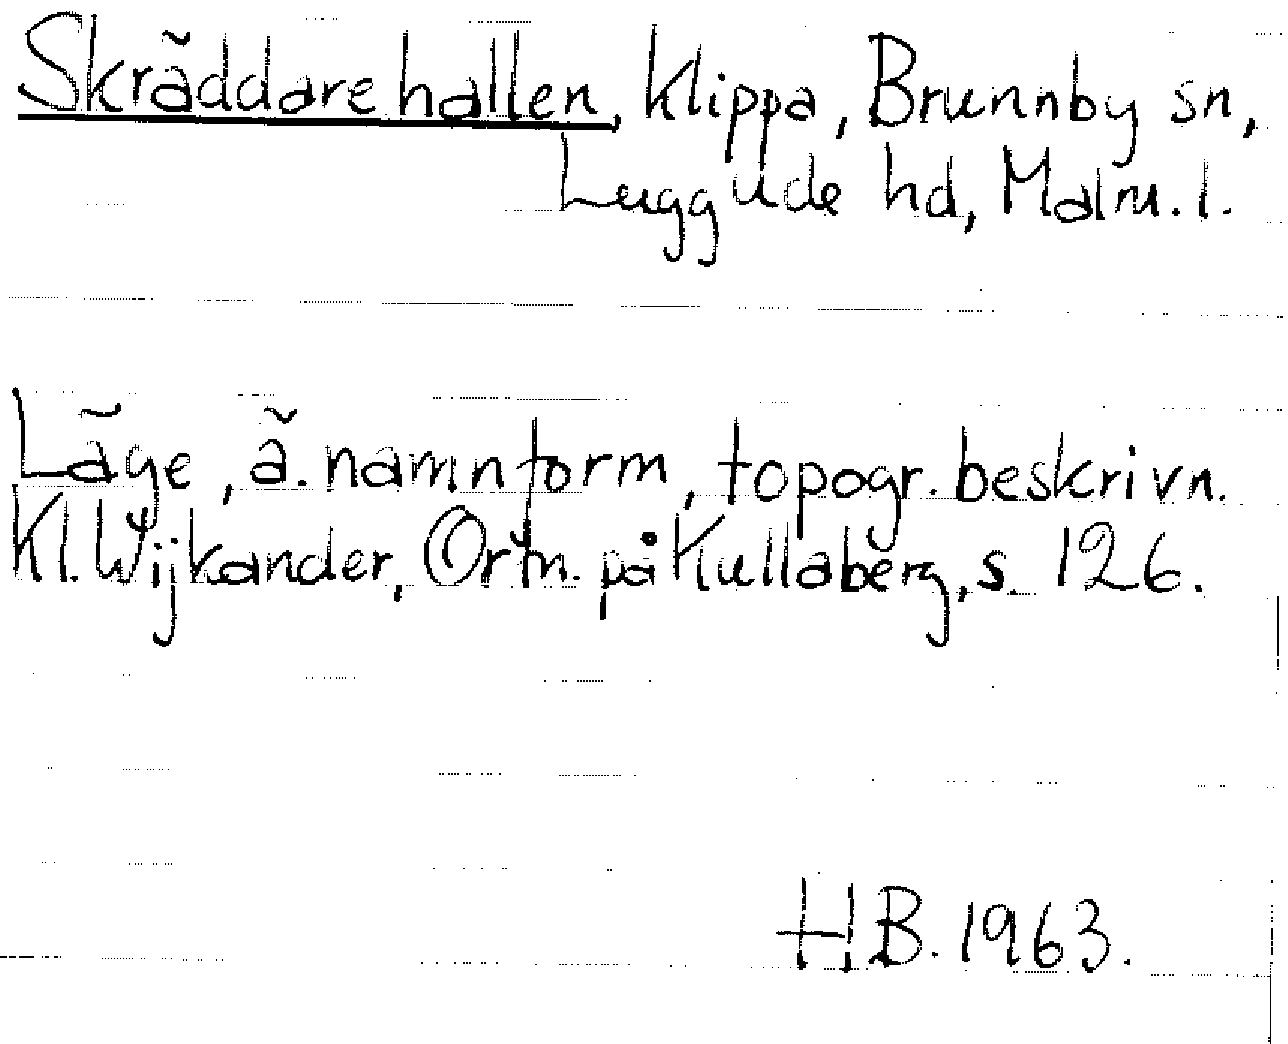 Skräddarehallen, Klippa, Brunnby sn,
Luggude hd, Malm. l.
Läge, ä. namnform, topogr. beskrivn.
Kl. Wijkander, Ortn. på Kullaberg, s. 126.
H.B. 1963.